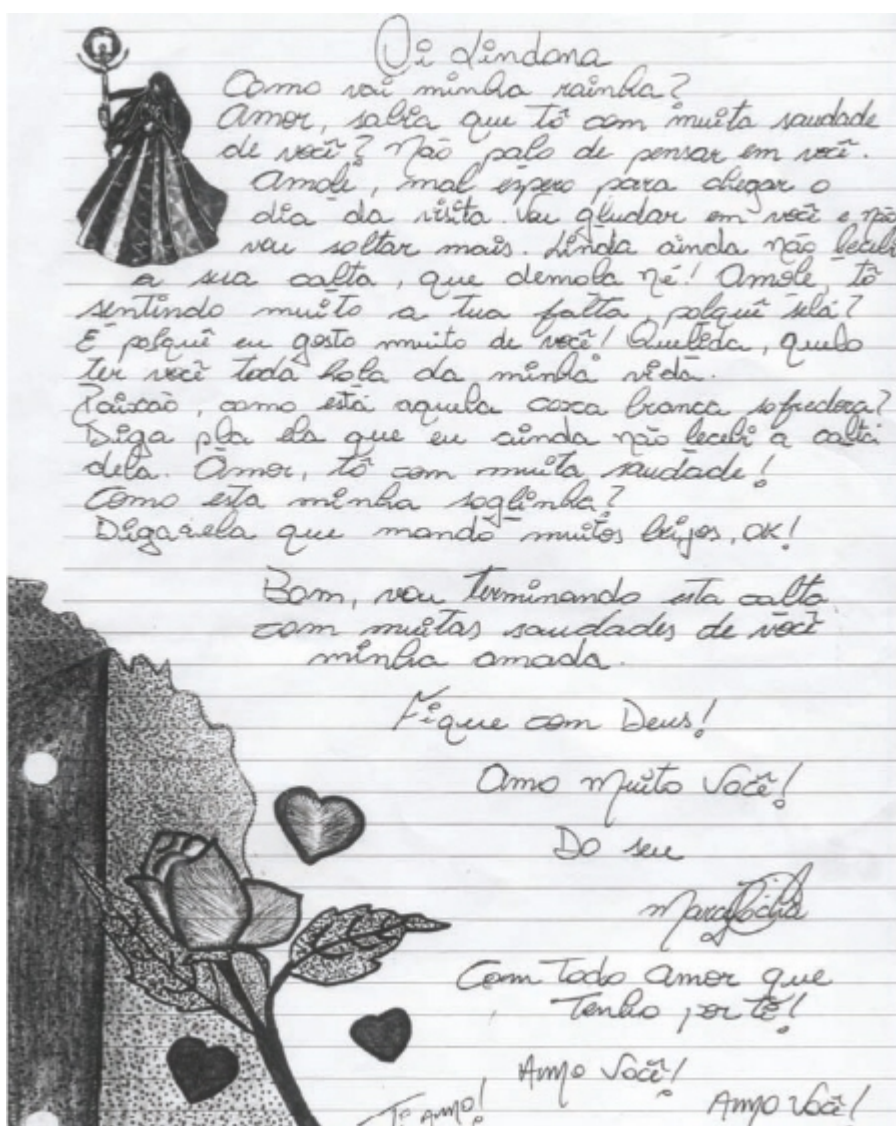 Oi Lindona
Como vai minha rainha?
Amor, sabia que tô com muita saudade
de você? Não palo de pensar em você.
Amole, mal espero para chegar o
dia da visita. Vou gludar em você e não
vou soltar mais. Linda ainda não lecebi
a sua calta, que demola né! Amole, tô
sentindo muito a tua falta, polquê selá?
É polquê eu gosto muito de você! Quelida, quelo
ter você toda hola da minha vida.
Paixão, como está aquela coxa branca sofredora?
Diga pla ela que eu ainda não lecebi a calta
dela. Amor, tô com muita saudade!
Como esta minha soglinha?
Diga a ela que mando muitos beijos, OK!
Bom, vou terminando esta calta
com muitas saudades de você
minha amada.
Fique com Deus!
Amo muito Você!
Do seu
Com Todo amor que
Tenho por ti!
Amo Você!
Ti Amo!
Amo Você!